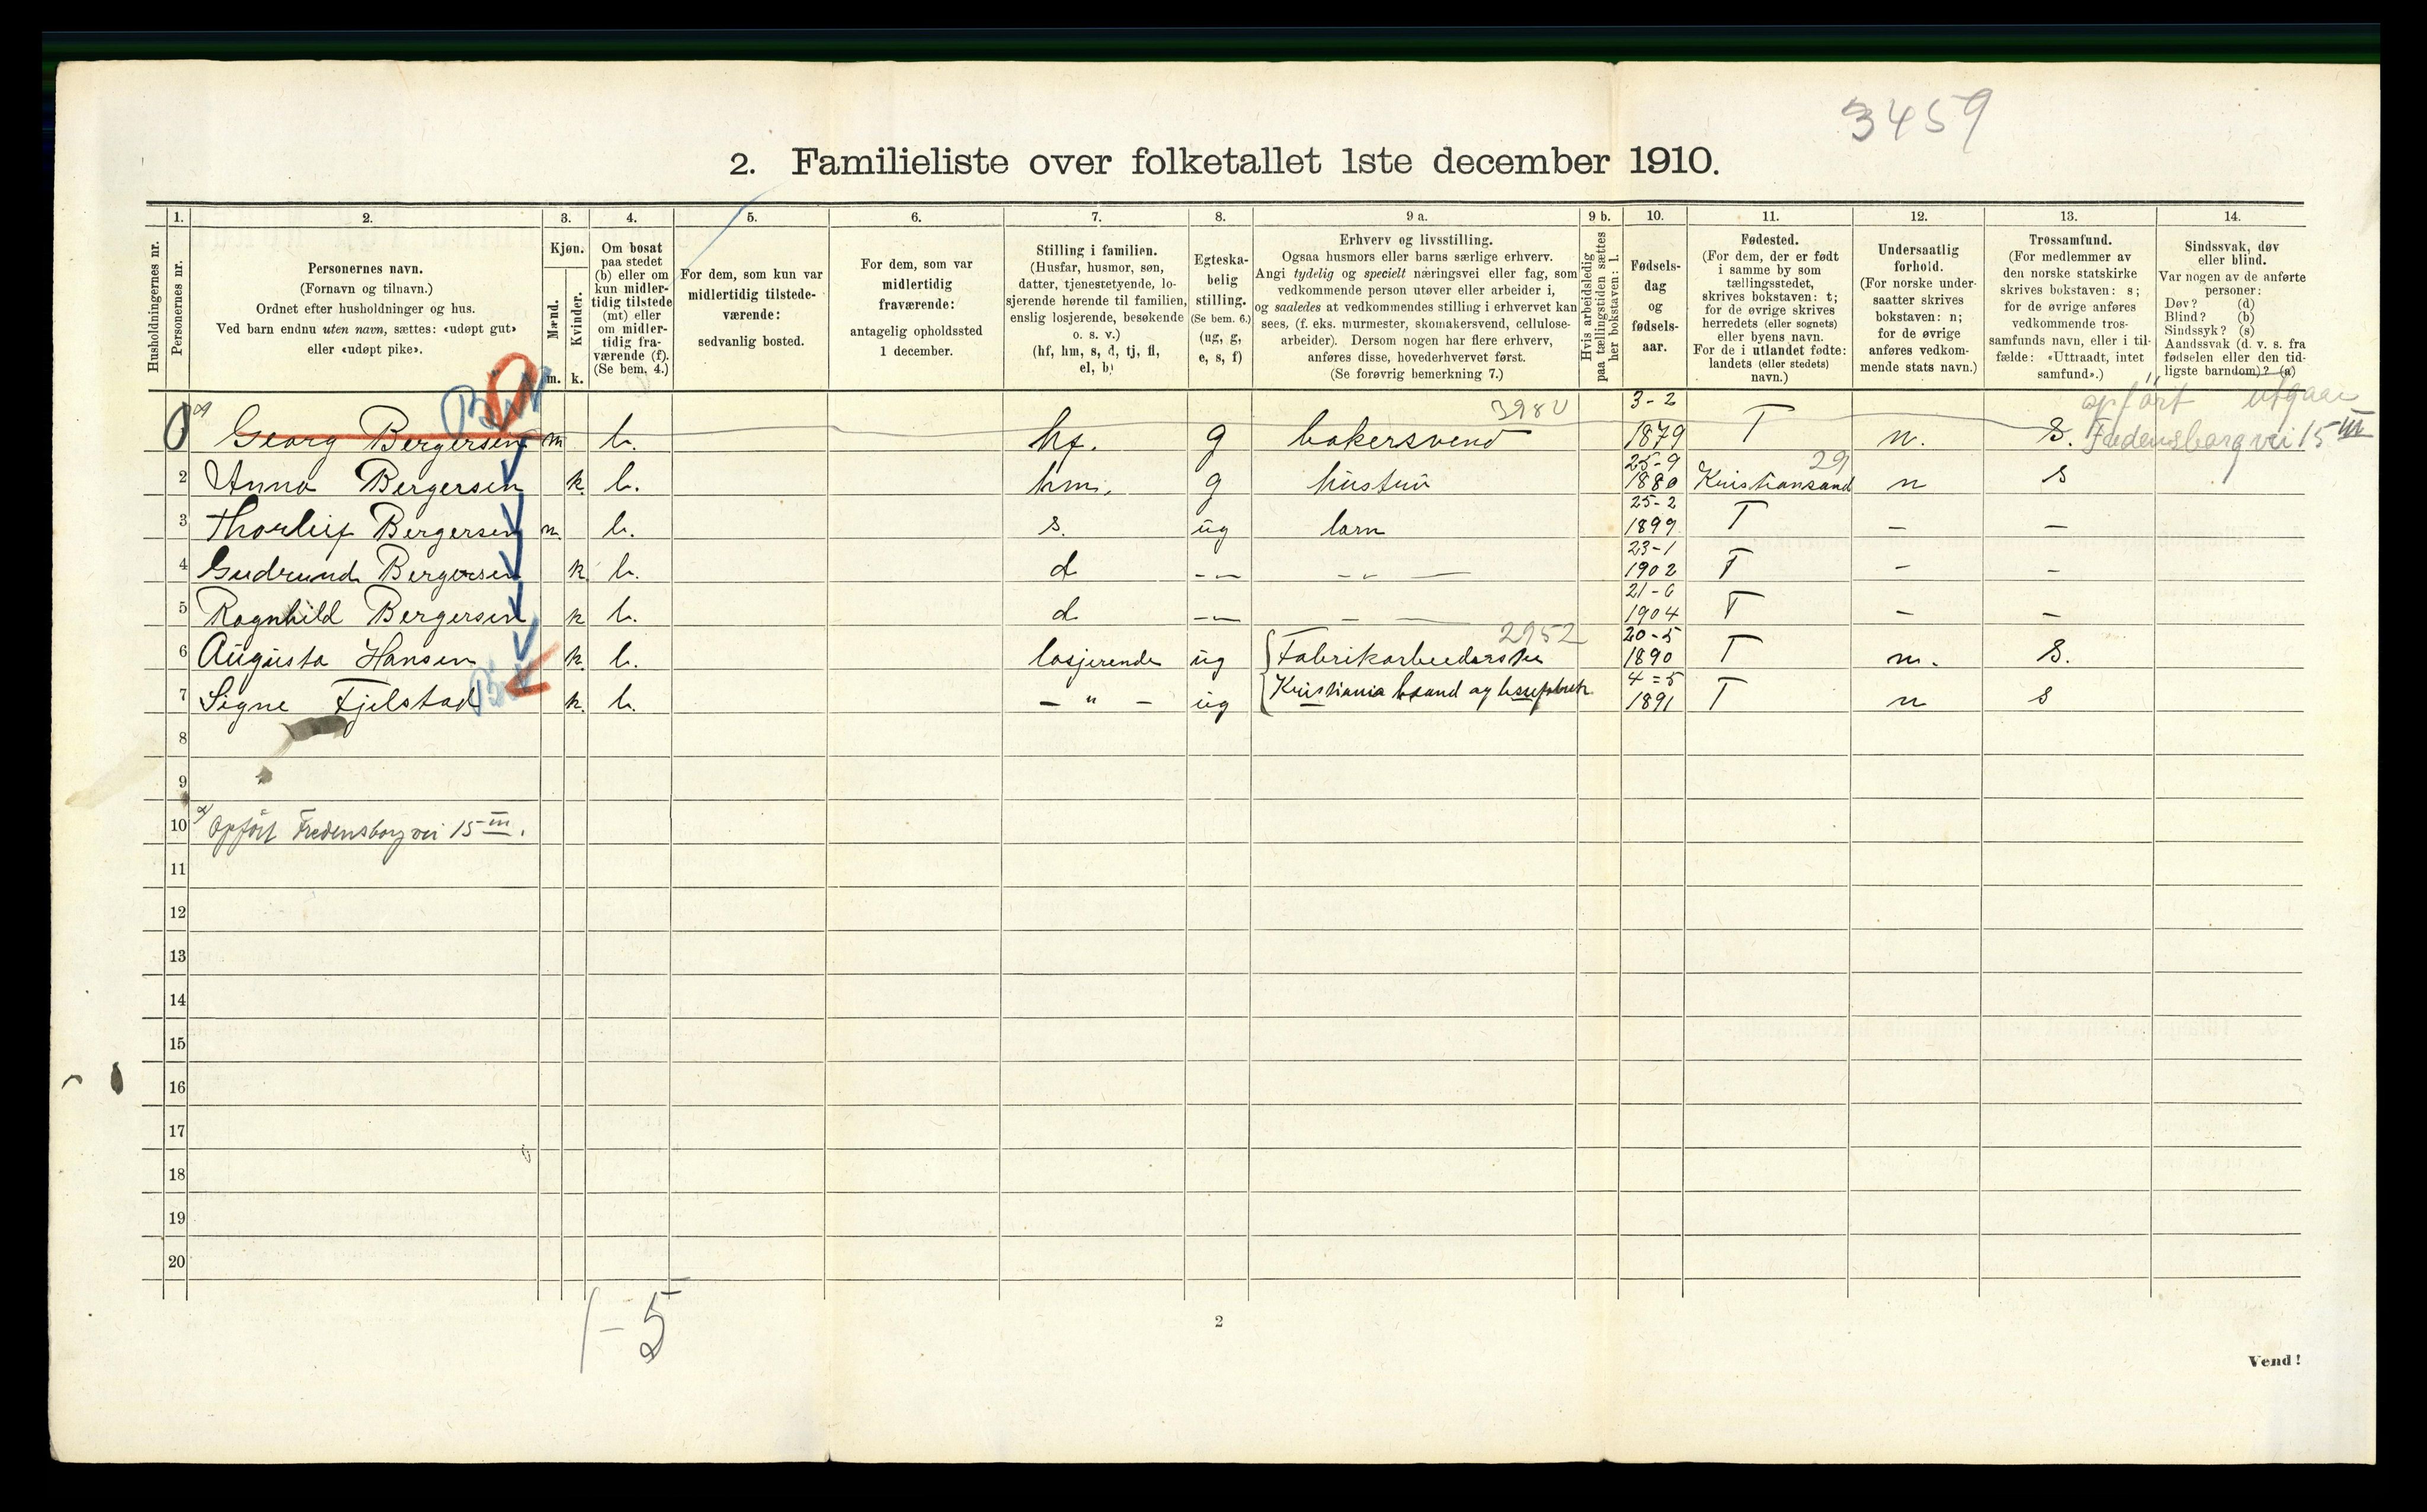 3459
2. Familieliste over folketallet 1ste december 1910.
1. 2. 3. 4. 5. 6. 7. 8. 9 a. 9 b. 10. 11. 12. 13. 14.
Husholdningernes nr.
Personernes nr.
Personernes navn.
(Fornavn og tilnavn.)
Ordnet efter husholdninger og hus.
Ved barn endnu uten navn, sættes: «udøpt gut»
eller «udøpt pike».
Kjøn.
Mænd.
Kvinder.
m. k.
Om bosat
paa stedet
(b) eller om
kun midler-
tidig tilstede
(mt) eller
om midler-
tidig fra-
værende (f).
(Se bem. 4.)
For dem, som kun var
midlertidig tilstede-
værende:
sedvanlig bosted.
For dem, som var
midlertidig
fraværende:
antagelig opholdssted
1 december.
Stilling i familien.
(Husfar, husmor, søn,
datter, tjenestetyende, lo-
sjerende hørende til familien,
enslig losjerende, besøkende
o. s. v.)
(hf, hm, s, d, tj, fl,
el, b)
Egteska-
belig
stilling.
(Se bem. 6.)
(ug, g,
e, s, f)
Erhverv og livsstilling.
Ogsaa husmors eller barns særlige erhverv.
Angi tydelig og specielt næringsvei eller fag, som
vedkommende person utøver eller arbeider i,
og saaledes at vedkommendes stilling i erhvervet kan
sees, (f. eks. murmester, skomakersvend, cellulose-
arbeider). Dersom nogen har flere erhverv,
anføres disse, hovederhvervet først.
(Se forøvrig bemerkning 7.)
Hvis arbeidsledig
paa tællingstiden sættes
her bokstaven: l.
Fødsels-
dag
og
fødsels-
aar.
Fødested.
(For dem, der er født
i samme by som
tællingsstedet,
skrives bokstaven: t;
for de øvrige skrives
herredets (eller sognets)
eller byens navn.
For de i utlandet fødte:
landets (eller stedets)
navn.)
Undersaatlig
forhold.
(For norske under-
saatter skrives
bokstaven: n;
for de øvrige
anføres vedkom-
mende stats navn.)
Trossamfund.
(For medlemmer av
den norske statskirke
skrives bokstaven: s;
for de øvrige anføres
vedkommende tros-
samfunds navn, eller i til-
fælde: «Uttraadt, intet
samfund».)
Sindssvak, døv
eller blind.
Var nogen av de anførte
personer:
Døv? (d)
Blind? (b)
Sindssyk? (s)
Aandssvak (d. v. s. fra
fødselen eller den tid-
ligste barndom)? (a)
opført utgaar
Fredensborgvei 15 III
Georg Bergersen m b. hf. g bakersvend 3-2 1879 T n. S.
2 Anna Bergersen k. b. hm. g hustru 25-9 1880 Kristiansand 29 n s
3 Thorleif Bergersen m. b. s. ug barn 25-2 1899 T — —
4 Gudrund Bergersen k b. d -"- -"- 23-1 1902 T — —
5 Ragnhild Bergersen k b. d -"- — 21-6 1904 T — —
2952
6 Augusta Hansen k. b. losjerende ug Fabrikarbeiderske 20-5 1890 T n. S.
7 Signe Fjelstad k. b. — " — ug Kristiania baand og 4=5 1891 T n s
8
9
10 Opført Fredensborgvei 15 III.
11
12
13
14
15
16
17
18
19
20
1-5
2
Vend!